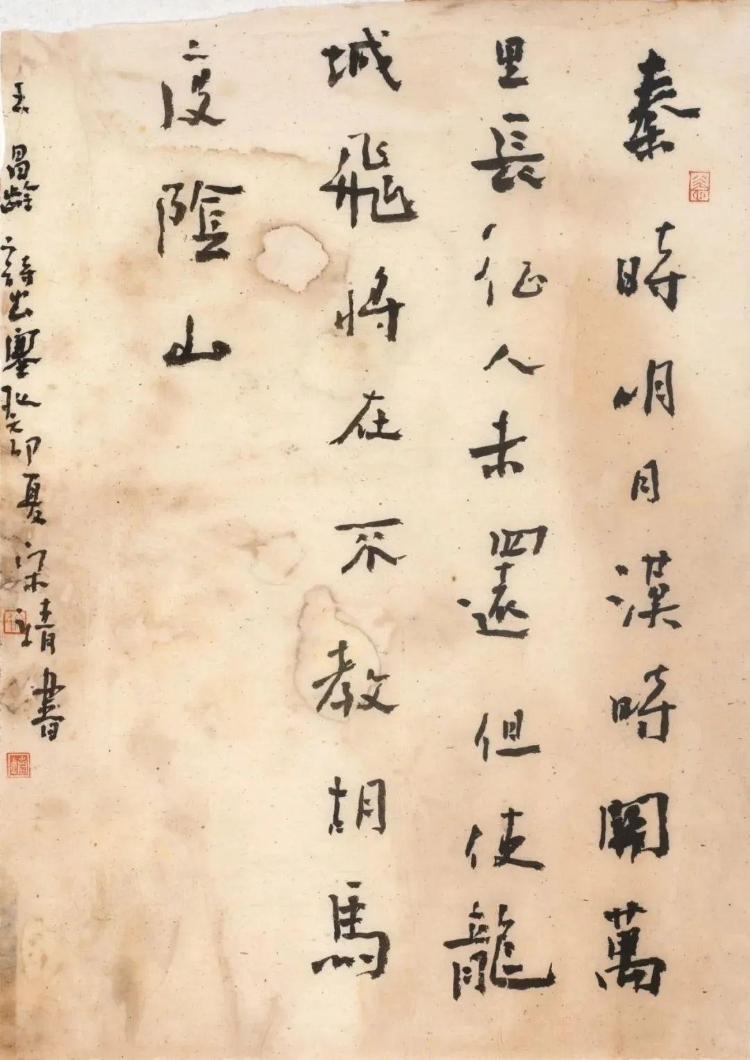 秦時明月漢時關萬
里長征人未還但使龍
城飛將在不教胡馬
度陰山
王昌齡之詩出塞癸卯夏靖書